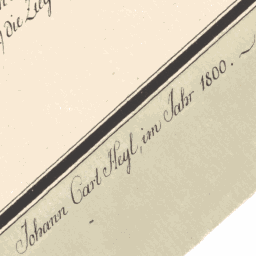 die Zieg
Johann Carl Heyl, im Jahr 1800.